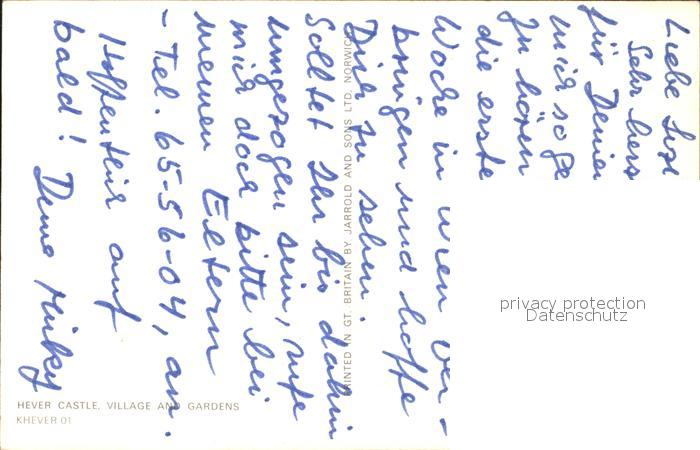 Liebe Susi
Sehr herz
für Deinen
mich so ge
zu hören
die erste
Woche in Wien ver-
bringen und hoffe
Dich zu sehen.
Solltet Ihr bis dahin
umgezogen sein, rufe
mich doch bitte bei
meinen Eltern
- Tel. 65-56-04, an.
Hoffentlich auf
bald! Deine
PRINTED IN GT. BRITAIN BY JARROLD AND SONS LTD, NORWICH
HEVER CASTLE, VILLAGE AND GARDENS
KHEVER 01
privacy protection
Datenschutz